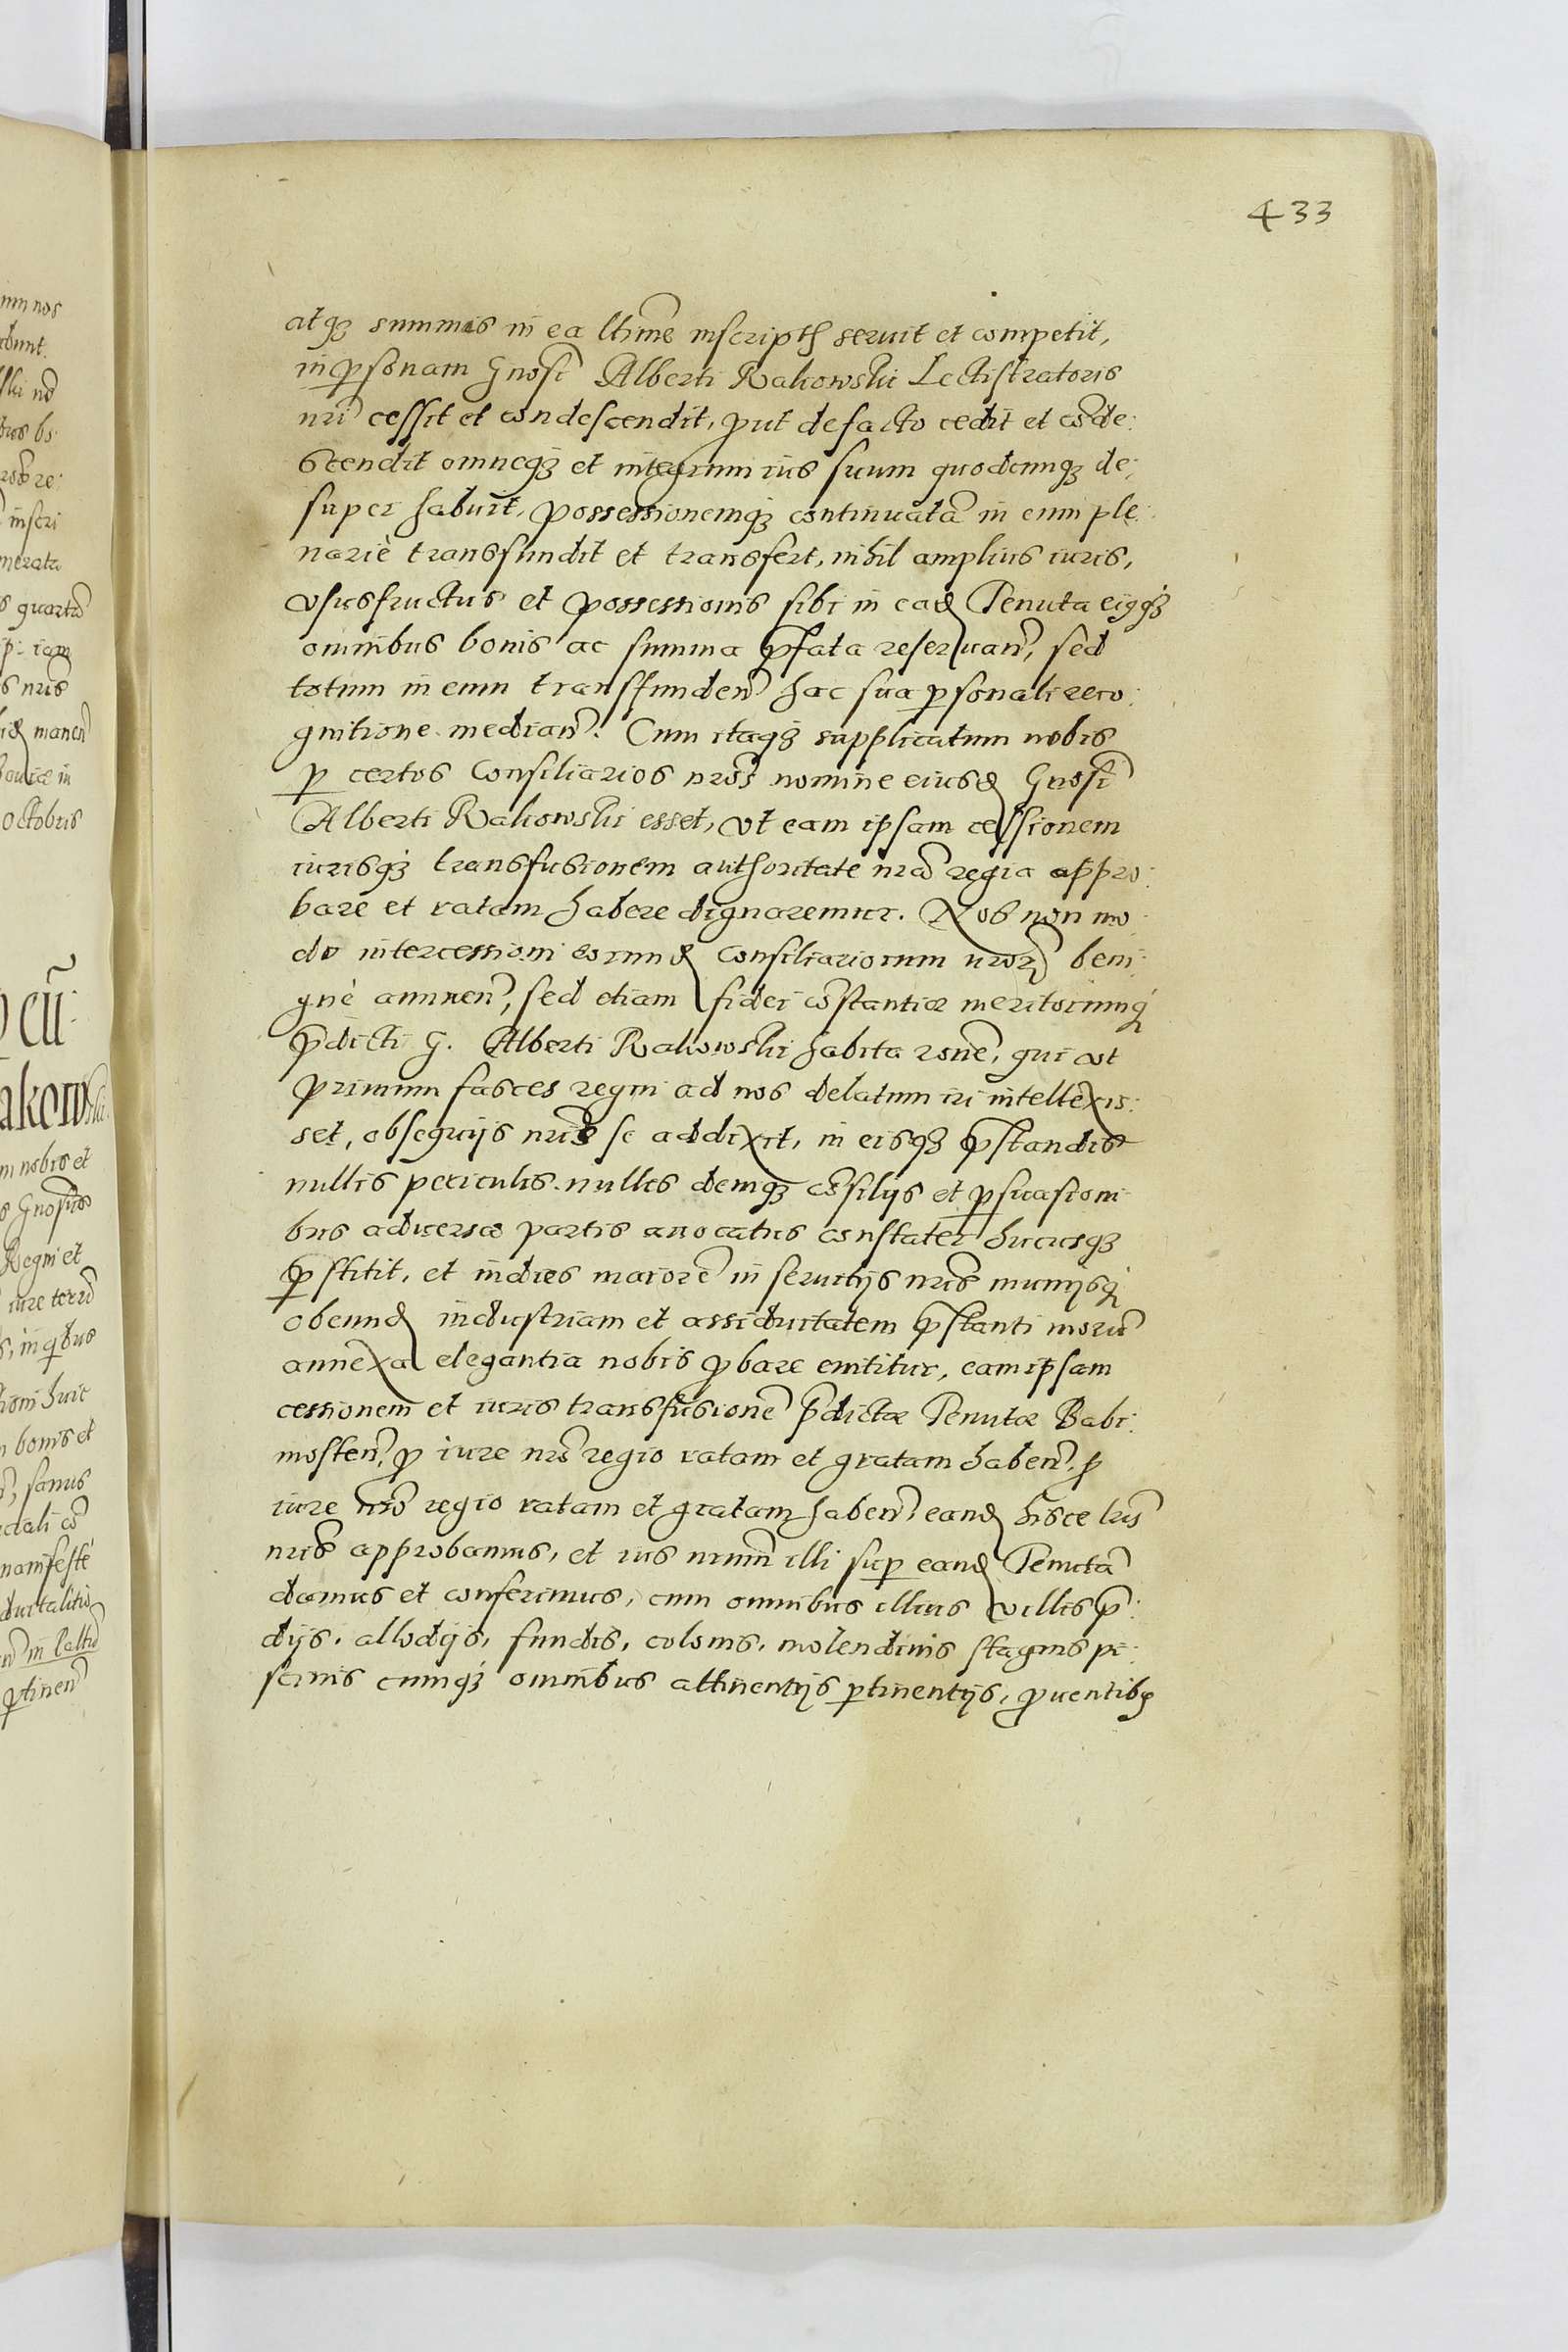 433
atq3 summis in ea ltime inscriptis seruit et competit,
in psonam Gnosi Alberti Rakowski Lectistratoris
nri cessit et condescendit, put defacto cedit et conde:
scendit omneq3 et integrum ius suum quodcunq3 de:
super habuit, possessionemq3 continuatã in eum ple:
nariè transfundit et transfert, nihil amplius iuris,
vsusfructus et possessionis sibi in ead Tenuta eiqq3
omnibus bonis ac summa pfata reseruan, sed
totum in eum transfunden hac sua psonali reco:
gnitione median. Cum itaq3 supplicatum nobis
p certos Consiliarios nros nomine eiusd Gnosi
Alberti Rakowski esset, vt eam ipsam cessionem
iurisq3 transfusionem authoritate nra regia appro:
bare et ratam habere dignaremur. Nos non mo:
do intercessioni eorund Consiliariorum nror beni:
gnè annuen, sed etiam fidei constantiæ meritorumq
pdicti G. Alberti Rakowski habita rone, qui vt
primum fasces regni ad nos delatum iri intellexis:
set, obsequijs nris se addixit, in eisq3 pstandis
nullis periculis, nullis deniq3 consilijs et psuasioni:
bus aduersæ partis auocatus constater hucusq3
pstitit, et indies maiorẽ in seruitijs nris munijsq
obeund industriam et assiduitatem pstanti morũ
annexa elegantia nobis pbare enititur, eam ipsam
cessionem et iuris transfusionẽ pdictæ Tenutæ Babi:
mosten, p iure nro regio ratam et gratam haben, p
iure nro regio ratam et gratam haben, eand hisce lris
nris approbamus, et ius nrum illi sup eand Tenutã
damus et conferimus, cum omnibus illius villis pr:
dijs, allodijs, fundis, colonis, molendinis stagnis pi:
scinis cumq3 omnibus attinentijs ptinentijs, puentibq